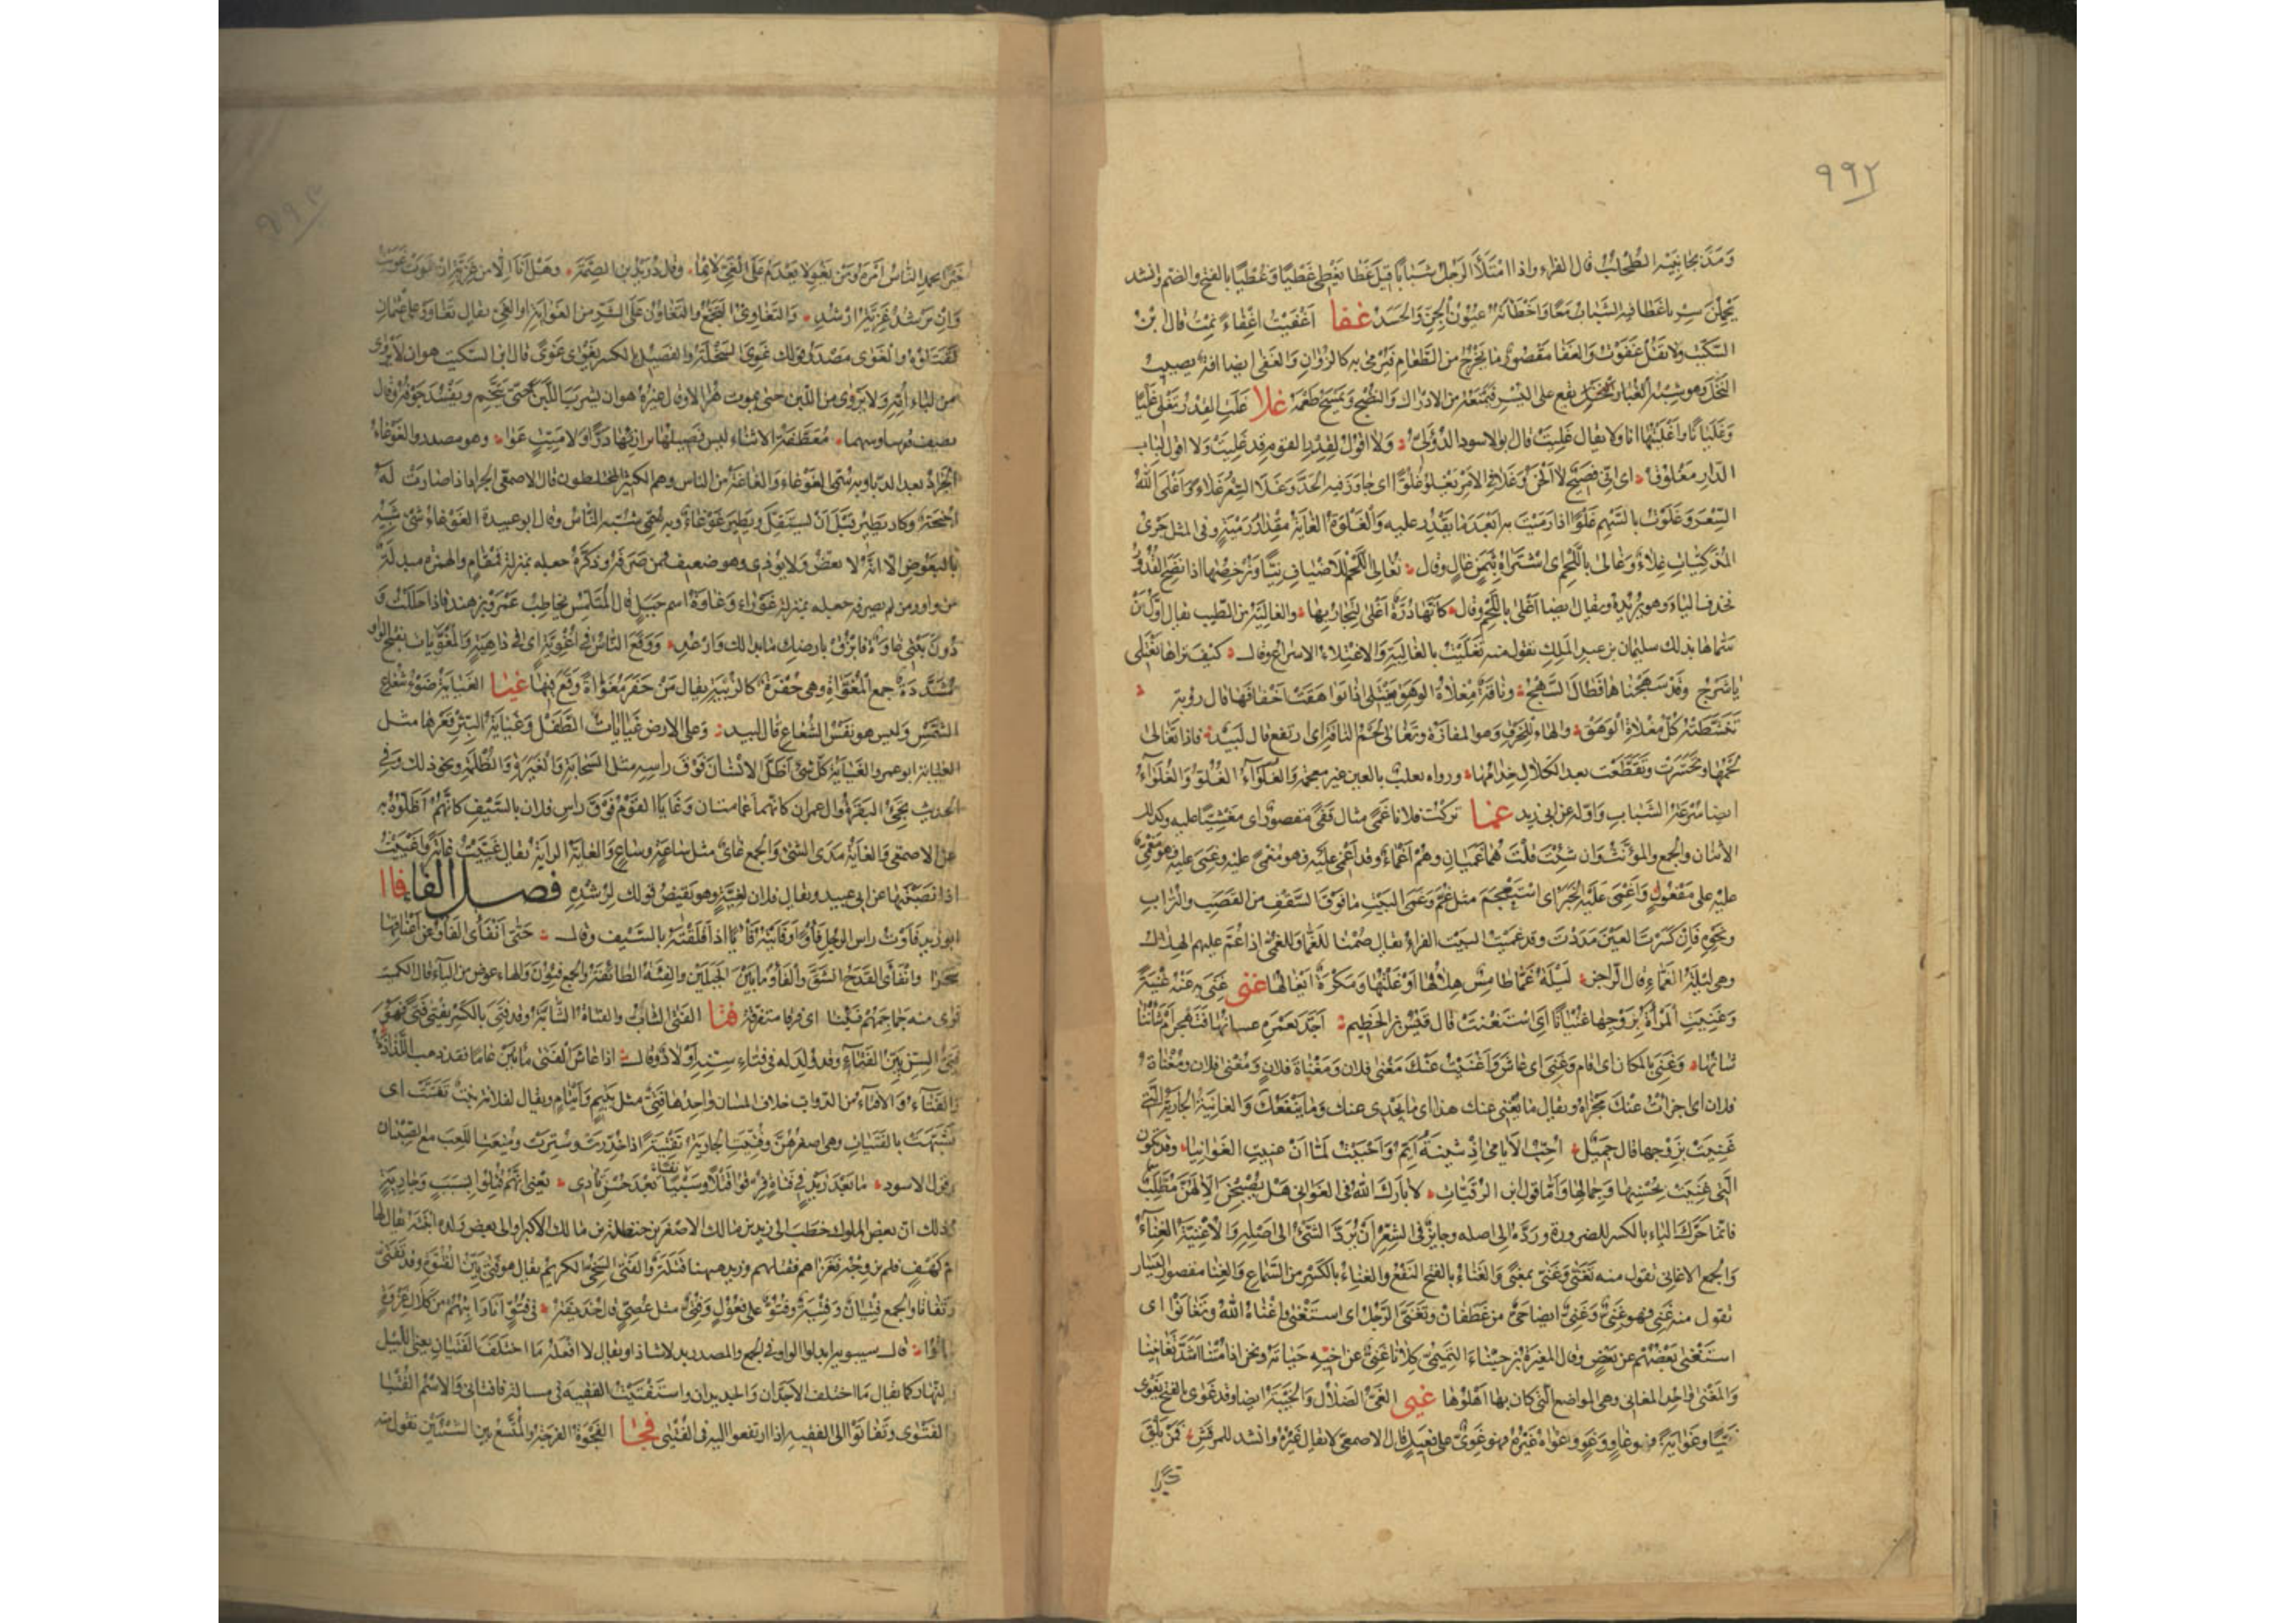 ٩٩٢
وَمَدَّ بجانبيه الطُحلب قال الفراء واذا امْتَلَأَ الرَجُل شَبَابًا قيل غَطَا يَغْطِى غَطْيًا وَغُطِيًّا بالفتح والضم وانشد
يَحْمِلْنَ سِرْبا غَطَا فيه الشَبابُ مَعًا وَاَخْطَأَتْهُ عيُونُ الجِنِّ وَالحَسَدُ غفا اَغْفَيْت اِغْفاءً نِمتُ قال بْن
السَكّيت ولا تقُلْ غَفَوْتُ وَالغَفَا مَقْصُورٌ مَا يُخْرَجُ من الطَعَامِ فَيُرْمى به كالزُوَانِ وَالغَفَى ايضا افة يصيب
النَخْلَ وهو شِبْه الغُبار يقع على البُسْر فَيَمْنَعُهُ من الادْرَاك وَالنُضْج وَيَمْسَخُ طَعْمَهُ غلا غَلَتِ القِدْرُ تَغْلِى غَلْيًا
وَغَلَيَانًا وأغْلَيْتُهَا انا ولا يقال غَلِيَتْ قال ابو الاسود الدُؤَلىّ وَلَا اقولُ لِقِدْرِ القوم قد غَلِيَتْ ولا اقول لباب
الدَارِ مَغْلُوقُ اى انّى فَصِيحٌ لَا اَلْحَنُ وَغَلَا فى الاَمْرِ يَغْلُو غُلُوًّا اى جَاوَزَ فيه الحَدَّ وَغَلَا السِّعْرُ غَلَاءً وَاَغْلَى اللّهُ
السِّعْرَ وَغَلَوْتُ بالسَهْمِ غَلْوًا اذا رَمَيْتَ به اَبْعَدَ مَا يَقْدِر عليه وَالْغَلْوَةُ الغايَةُ مِقْدَارُ رَمْيَةٍ وفى المثل جَرْىُ
المُذَكِّيَاتِ غِلَاءٌ وَغَالى بِاللَحْمِ اى اشْتَرَاهُ بِثَمَنٍ غَالٍ وقال نُغَالِى اللَحْمَ للاَضْيافِ نِيًّا وَنُرْخِصُهُ اذا نَضِجَ القُدُورُ
نحذف الباء وهو يريده ويقال ايضا اَغْلَى باللَحْمِ وقال كَاَنَّهَا دُرَّةٌ اَغْلَى التِجَارُ بِهَا والغاليَةُ من الطيب يقال اوّلُ مَنْ
سَمَّاهَا بذلك سليمان بن عبد المَلِكِ تقول منه تَغَلَّيْتُ بالغَالِيَةِ وَالاغْتِلَاءُ الاسْرَاعُ وقال كَيْفَ تَرَاهَا تَغْتَلى
يا شَرْجُ وقَدْ سَهَجْنَاهَا فَطَالَ السَهْجُ وَناقَةٌ مِغْلَاةُ الوَهَقِ تَغْتَلى اذا تَوَاهَقَتْ اَخْفَافُهَا قال رؤبة
تَنَشَّطَتْهُ كُلُّ مِغْلَاةِ الْوَهَقْ والهاء للخَرْقِ وهوا المفازَةُ وتَغَالَى لَحْمُ الناقة اى ارتفع قال لَبيْد فاذا تَغَالَى
لَحْمُهَا وتَحَسَّرَت وَتَقَطَّعَت بعد الكَلَالِ خِدَامُهَا ورواه ثعلب بالعين غير معجمة وَالغُلَوَاءُ الغُلُوُّ وَالْغُلَوَاءُ
ايضا سُرْعَةُ الشَباب واوّله عن ابى زيد غما تركت فلانا غَمًى مثال قَفًى مقصورٌ اى مغشِيًّا عليه وكذلك
الاثنان والجمع والمؤنّثُ وَان شِئْتَ قُلْتَ هُمَا غَمَيَانِ وَهُمْ اَغْمَاءٌ وقد اُغْمِىَ عَلَيْهِ فهو مُغْمًى عليه وغُمِىَ عليه فهو مَغْمِىٌّ
عليه على مَفْعُولٍ وَاُغْمِىَ عَلَيْهِ الخَبَرُ اى اسْتَعْجَمَ مثل غُمَّ وَغَمَى البَيْتِ مَا فوق السَقْفِ من القَصَبِ والتُرَابِ
ونحوه فَاِنْ كَسَرْتَ الغَيْنَ مَدَدْتَ وقد غَمَيْتُ البيت الفراءُ يقال صُمْنَا للغُمَّى وللغَمَّى اذا غُمَّ عليهم الهلال
وهى ليْلَةُ الغَمَّى قال الراجز لَيْلَةُ غَمَّى طَامِسٌ هِلَالُهَا اَوْغَلْتُهَا وَمَكْرَهٌ اِيغَالُهَا غنى غَنِىَ به عَنْهُ غُنْيَةً
وَغَنِيَتِ المَرْأَةُ بِزَوْجِهَا غُنْيَانًا اى اسْتَغْنَتْ قال قَيْسُ بن الخَطِيم اَجَدَّ بعَمْرَةَ غنيانُهَا فَتَهْجُرَ اَمْ شَانُنَا
شَانُهَا وَغَنِىَ بالمكان اى اقام وَغَنِىَ اى عَاشَ وَاَغْنَيْتُ عَنْكَ مَغْنَى فلان وَمَغْنَاةَ فلانٍ وَمُغْنَى فلان ومُغْنَاةَ
فلان اى اجزأتُ عَنْكَ مُجْزَاه ويقال مَا يُغْنِى عَنك هذا اى مَا يُجْدِى عنك وَمَا يَنْفَعُكَ وَالغَانِيَةُ الجارية التى
غَنِيَتْ بِزَوْجِها قال جَمِيلٌ اُحِبُّ الاَيامى اِذْ بُثَيْنَةُ اَيِّمٌ وَاَحْبَبْتُ لَمَّا اَنْ غنيتِ الغَوَانِيا وقد تكون
التى غَنِيَتْ بِحُسْنِهَا وَجَمالِهَا وَاَمَّا قول ابن الرُقَيَّاتِ لَا بَارَكَ اللّهُ فى الغَوَانى هَلْ يُصْبِحْنَ اِلَّا لَهُنَّ مُطَّلَبُ
فانَّما حَرَّكَ الياء بالكسر للضرورة ورَدَّهُ الى اصله وجايزٌ فى الشِعْرِ اَنْ يُرَدَّ الشَىْءُ الى اصْلِهِ وَالاُغْنِيَّةُ الغِنَاءُ
وَالجمع الاغانى تقول منه تَغَنَّى وَغَنَّى بمعنًى وَالغَنَاءُ بالفتح النَفْعُ والغِنَاءُ بالكَسْرِ من السَمَاعِ وَالغِنا مقصور اليَسَار
تقول منه غَنِىَ فهو غَنِىٌّ وَغَنِىٌّ ايضا حَىٌّ من غَطَفَانَ وتَغَنَّى الرَجُلُ اى استَغْنَى واغْنَاهُ اللّهُ وتَغَانَوْا اى
استَغْنَى بَعْضُهُمْ عن بَعْضٍ وقال المغيرة بن حَبْنَاءَ التَميمىُّ كِلَانَا غَنِىٌّ عن اخيه حَيَاتَهُ ونحن اذا مُتْنَا اَشَدُّ تَغَانِيَا
وَالمَغْنَى واحِدُ المغانى وهى المواضع التى كان بها اَهْلُوهَا غيى الغَىُّ الضلَالُ وَالخَيْبَةُ ايضا وقد غَوَى بالفتح يَغْوِى
غَيًّا وَغَوَايَةً فهو غاوٍ وَغَوٍ واَغْوَاهُ غَيْرُهُ فهو غَوِىٌّ على فَعِيلٍ قال الاصمعى لا يقال غَيْرُهُ وانشد للمرقّش فَمَنْ يَلْقَ
خَيْرًا
٩٩٣
خَيْرًا يحمد النَّاسُ اَمْرَهُ وَمَنْ يَغْوَ لا يَعْدَمْ عَلَى الْغَىِّ لَائِمَا وقال دُرَيْدُ بن الصِمَّة وهَلْ اَنَا اِلَّا من غَزِيَّةَ اِنْ غَوَتْ غَوَيْتُ
وَاِنْ تَرْشُدْ غَزِيَّةُ اَرْشُدِ وَالتَغَاوِى التَجَمُّعُ وَالتَعَاوُنُ عَلَى الشَرِّ من الغَوَايَةِ او الغَىِّ يقال تَغَاوَوْا على عثمان
فَقَتَلُوْهُ والغَوَى مَصْدَرُ قولك غَوِىَ السَخْلَةُ وَالفَصِيلُ بالكسر يَغْوَى غَوًى قال ابن السّكيت هو ان لا يَرْوَى
من لِبَاءِ اُمِّهِ وَلا يَرْوَى من اللَبَن حَتّى يموت هُزَالًا وقال غَيْرُهُ هو ان يَشْرَبَ اللَبَنَ حَتَّى يَتَّخِمَ وَيَفْسُدَ جَوْفُهُ وقال
يصف قوسا وسهما مُعَطَّفَةُ الاثْنَاءِ ليس فَصِيلُهَا برَازِئِهَا دَرًّا وَلا مَيِّتٍ غَوَا وهو مصدر والغَوْغَاءُ
الجَرَادُ بعد الدَبا وبه سُمّى الغَوْغَاءُ وَالغَاغَةُ من الناس وهم الكثير المختلطون قال الاصمعى الجراد اذا صَارَتْ لَهُ
اجْنِحَةٌ وكاد يَطِيْرُ قَبْلَ اَنْ يَسْتَقِلَّ وَيَطِيْرَ غَوْغَاءٌ وبه سُمِّى النَّاسُ وقال ابو عبيدة الغَوْغَاءُ شَىْءٌ شَبِيْهٌ
بالبَعُوْضِ الّا انَّهُ لا يعَضُّ وَلَا يُؤْذِى وهو ضعيف فمن صَرَفَهُ وذَكَّرَهُ جعله بمنزلة قَمْقَامٍ والهمزة مبدلَةٌ
من واو ومن لم يصرفه جعله بمنزلة عَوْرَاءَ وَغَاوَةُ اسم جَبَلٍ قال الْمُتَلَمِّسُ يخاطب عَمْرَو بن هند فاذا حَلَلْتُ وَ
دُونَ بَيْتِى غَاوَةٌ فابْرُقْ بارضِكَ مَا بدا لك وَارْعُدِ ووَقَعَ النَاسُ فى اُغْوِيَّةٍ اى فى دَاهِيَةٍ وَالْمُغَوَّيَات بفتح الواو
مُشَدَّدَةً جمع المُغَوَّاةِ وهى حُفْرَةٌ كالزُبْيَةِ يقال مَنْ حَفَرَ مُغَوَّاةً وَقَعَ فِيْهَا غيا الغَيَايَةُ ضَوْءُ شُعَاعِ
الشَّمْسِ وليس هو نَفْسَ الشُعَاعِ قال لبيد وَعلى الارض غَيَايَاتُ الطَفَلْ وَغَيَايَةُ البئر قَعْرُهَا مثل
الغيابة ابو عمرو الغَيَايَةُ كُلُّ شَىْءٍ اَظَلَّ الانْسَانَ فَوْقَ راسِه مثل السَحَابَةِ وَالْغَبَرَةِ وَالظُلْمَةِ ونحو ذلك وفى
الحديث تَجِىْءُ البَقَرَةُ وال عمران كانَّهما غَمَامتان وَغَايَا القَوْمُ فَوْقَ راسِ فلان بالسَّيْفِ كانَّهُمْ اَظَلُّوْهُ به
عن الاصمعى وَالغَايَةُ مَدَى الشىْءِ وَالجمع غَاىٌ مثل سَاعَةٍ وسَاعٍ وَالغَايَةُ الرايَةُ يقال غَيَّيْتُ غَايَةً واَغْيَيْتُ
اذا نَصَبْتَهَا عن ابى عبيد ويقال فلان لِغَيَّةٍ وهو نَقيضُ قولك لِرَشْدِهِ فصل الفاء فاا
ابو زيد فَأَوْتُ راس الرجُلِ فَأْوًا وَفَأَيْتُهُ فَأْيًا اذا فَلَقْتَهُ بالسَيْفِ وقال حَتَّى انْفَأَى الفَأْوُ عن اَعْنَاقِهَا
سَحَرَا وانْفَأَى القَدَحُ انْشَقَّ وَالفَأْوُ مَا بَيْنَ الجَبَلَيْنِ وَالفِئَةُ الطَائفَةُ وَالجمع فِئُوْنَ والهاء عوض من الياء قال الكميت
تَرَى منه جَمَاجِمَهُمْ فِئينا اى فرقا متفرقة فتا الفَتَى الشَابُّ وَالفَتَاةُ الشَّابَّةُ وقد فَتِىَ بالكَسْرِ يَفْتَى فَتًى فَهُوَ
فَتِىُّ السِنِّ بَيِّن الفَتَاءِ وقد وُلِدَ له فى فَتَاءِ سِنِّهِ اَوْلَادٌ وقال اذا عَاشَ الفَتَى مَائَتَيْنِ عَامًا فقد ذهب اللَذَاذَةُ
وَالفَتَاءُ وَالاَفْتَاءُ من الدَوابِّ خلاف المسان واحِدُهَا فَتِىٌّ مثل يَتِيْمٍ وَأَيْتَامٍ ويقال لفلان بِنْتٌ تَفَتَّتْ اى
تَشَبَّهَتْ بالفَتَيَاتِ وهى اصغرهُنَّ وَفُتِّيَتِ الجارية تَفْتِيَةً اذا خُدِّرَتْ وسُتِرَتْ وَمُنِعَت للَّعِبَ مع الصِبْيَان
وقول الاسود مَا بَعْدَ زَيْدٍ فى فَتَاةٍ فُرِّقُوْا قَتْلًا وَسَبْيًا بَعْدَ حُسْنِ تَآدِى يعنى انَّهُمْ قُتِلُوا بِسَبَبِ جَارِيَةٍ
وذلك ان بعض الملوك خطب الى زيد بن مالك الاصغر بن حنظلة بن مالك الاكبر او الى بعض ولده ابنَتَهُ يقال لها
اُمّ كَهْفٍ فلم يزوجْهُ فَغَزَاهم فقتلهم وزيد ههنا قَبِيلَةٌ وَالفَتَى السَخِىُّ الكريمُ يقال هو فَتًى بَيِّنُ الفُتُوَّةِ وقد تَفَتَّى
وَتَفَاتَا والجمع فِتْيَانٌ وَفِتْيَةٌ وفُتُوٌّ على فُعُوْلٍ وَفُتِىٌّ مثل عُصِىٍّ قال جَذيمَةُ فى فُتُوٍّ اَنَا رَابِئُهُمْ من كَلَالِ غَزْوَةٍ
مَاتُوْا قال سيبويه ابدلوا الواو فى الجمع والمصدر بدلا شاذا ويقال لا افْعَلُهُ مَا اختلَفَ الْفَتَيَان يعنى الليل
وَالنهار كما يقال مَا اختلف الاجَدَّان والجديدان واستَفْتَيْتُ الفقيه فى مسألة فافتانى وَالاسْم الفُتْيَا
وَالفَتْوَى وتَفَاتَوْا الى الفقيه اذا ارتفعوا اليه فى الفُتْيَى فجا الفَجْوَةُ الفرجَةُ والْمُتَّسَعُ بين الشَيْئَيْنِ تقول منه